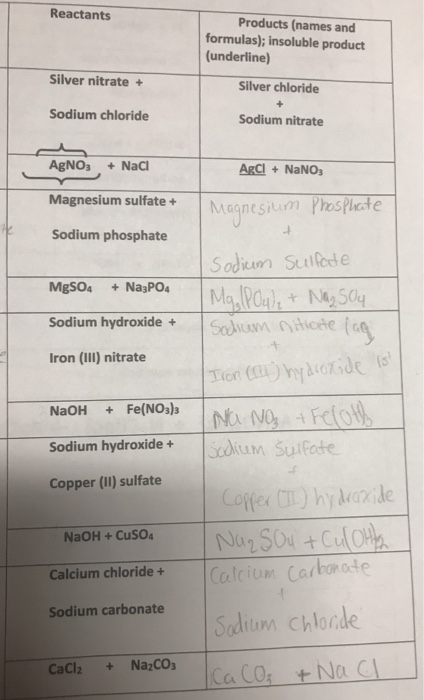 Reactants
Products (names and
formulas); insoluble product
(underline)
Silver nitrate +
Sodium chloride
Silver chloride
+
Sodium nitrate
AgNO₃ + NaCl
AgCl + NaNO₃
Magnesium sulfate +
Sodium phosphate
Magnesium Phosphate
+
Sodium Sulfate
MgSO₄ + Na₃PO₄
Mg₃(PO₄)₂ + Na₂SO₄
Sodium hydroxide +
Iron (III) nitrate
Sodium nitrate (aq
+
Iron (III) hydroxide (s)
NaOH + Fe(NO₃)₃
Na NO₃ + Fe(OH)₃
Sodium hydroxide +
Copper (II) sulfate
Sodium Sulfate
+
Copper (II) hydroxide
NaOH + CuSO₄
Na₂SO₄ + Cu(OH)₂
Calcium chloride +
Sodium carbonate
Calcium Carbonate
+
Sodium chloride
CaCl₂ + Na₂CO₃
CaCO₃ + NaCl